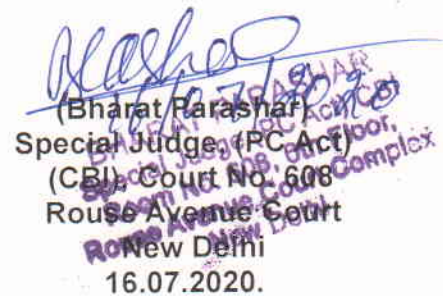 16/07/2020
(Bharat Parashar)
Special Judge, (PC Act)
(CBI), Court No. 608
Rouse Avenue Court
New Delhi
16.07.2020.
BHARAT PARASHAR
Special Judge (PC Act) CBI
Room No. 608, 6th Floor,
Rouse Avenue Court Complex
New Delhi